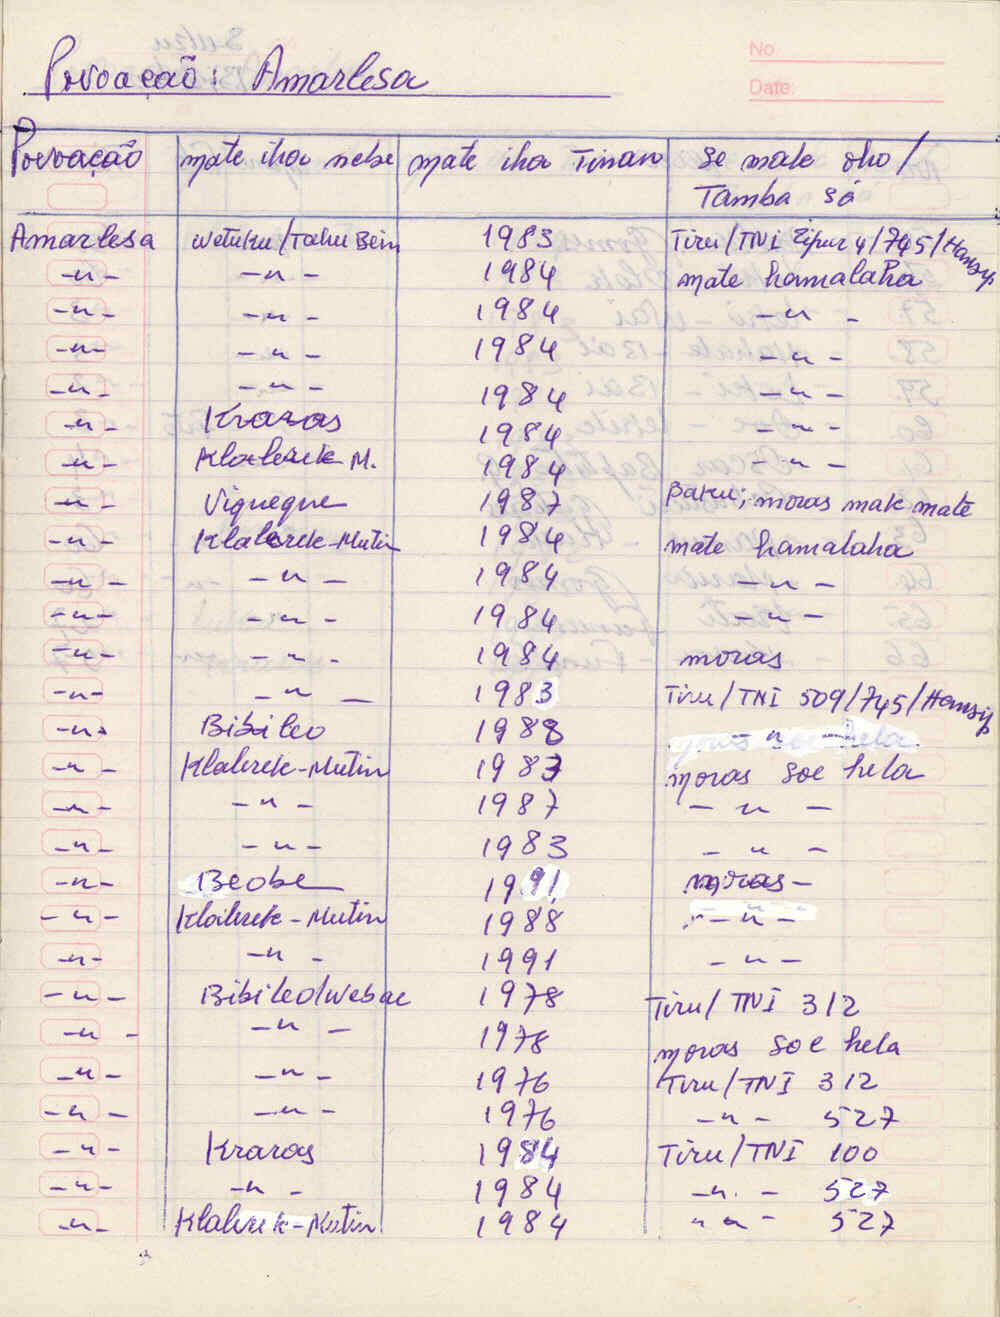 No
Date:
Povoação: Amarlesa
Povoação mate iha nebe mate iha Tinan Se mak oho /
Tamba sá
Amarlesa Wetuku/Tahu Bein 1983 Tiru/TNI Zipur 4/745/Hansip
-"- -"- 1984 mate hamalaha
-"- -"- 1984 -"-
-"- -"- 1984 -"-
-"- -"- 1984 -"-
-"- Kraras 1984 -"-
-"- Klalerek M. 1984 -"-
-"- Viqueque 1987 Baku; moras mak mate
-"- Klalerek-Mutin 1984 mate hamalaha
-"- -"- 1984 -"-
-"- -"- 1984 -"-
-"- -"- 1984 moras
-"- -"- 1983 Tiru/TNI 509/745/Hansip
-"- Bibileo 1988 -"-
-"- Klalerek-Mutin 1983 moras soe hela
-"- -"- 1987 -"-
-"- -"- 1983 -"-
-"- Beobe 1991 moras-
-"- Klalerek-Mutin 1988 -"-
-"- -"- 1991 -"-
-"- Bibileo/Webae 1978 Tiru/TNI 312
-"- -"- 1978 moras soe hela
-"- -"- 1976 Tiru/TNI 312
-"- -"- 1976 -"- 527
-"- Kraras 1984 Tiru/TNI 100
-"- -"- 1984 -"- 527
-"- Klalerek-Mutin 1984 -"- 527